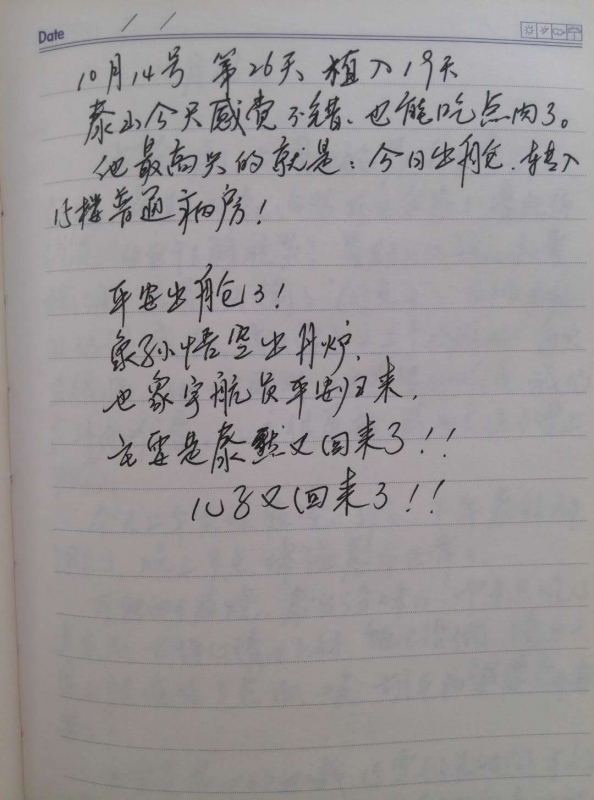 Date / /
10月14号 第26天 植入19天
泰山今天感觉不错、也能吃点肉了。
他最高兴的就是：今日出舱、转入
15楼普通病房！
平安出舱了！
象孙悟空出丹炉，
也象宇航员平安归来，
主要是泰然又回来了！！
儿子又回来了！！